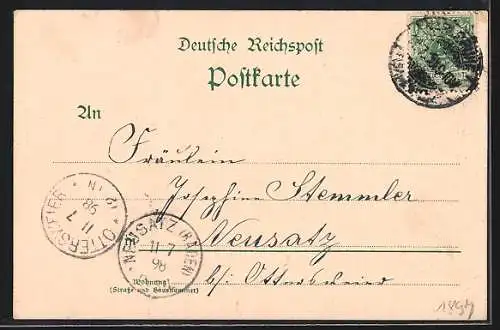 Deutsche Reichspost
Postkarte
An
Fräulein
Josephine Stemmler
Neusatz
b/. Ottersweier
Wohnung
(Straße und Hausnummer)
OTTERSWEIER
11 7
98
12-1N
NEUSATZ (BADEN)
11 7
98
1894